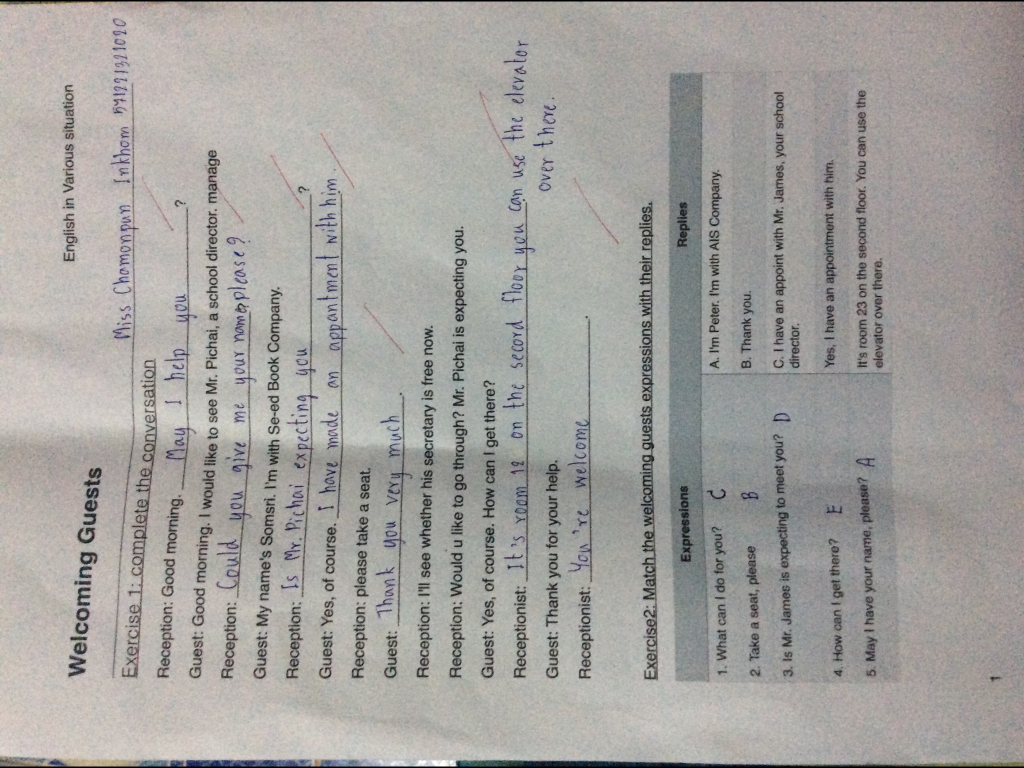 English in Various situation
Welcoming Guests
Miss Chamonpun Inkhom 571221321020
Exercise 1: complete the conversation
Reception: Good morning. May I help you ?
Guest: Good morning. I would like to see Mr. Pichai, a school director. manage
Reception: Could you give me your name, please?
Guest: My name's Somsri. I'm with Se-ed Book Company.
Reception: Is Mr. Pichai expecting you ?
Guest: Yes, of course. I have made an appantment with him.
Reception: please take a seat.
Guest: Thank you very much.
Reception: I'll see whether his secretary is free now.
Reception: Would u like to go through? Mr. Pichai is expecting you.
Guest: Yes, of course. How can I get there?
Receptionist: It's room 12 on the second floor you can use the elevator
over there.
Guest: Thank you for your help.
Receptionist: You're welcome.
Exercise2: Match the welcoming guests expressions with their replies.
Expressions Replies
1. What can I do for you? C A. I'm Peter. I'm with AIS Company.
2. Take a seat, please B B. Thank you.
3. Is Mr. James is expecting to meet you? D C. I have an appoint with Mr. James, your school
director.
4. How can I get there? E Yes, I have an appointment with him.
5. May I have your name, please? A It's room 23 on the second floor. You can use the
elevator over there.
1